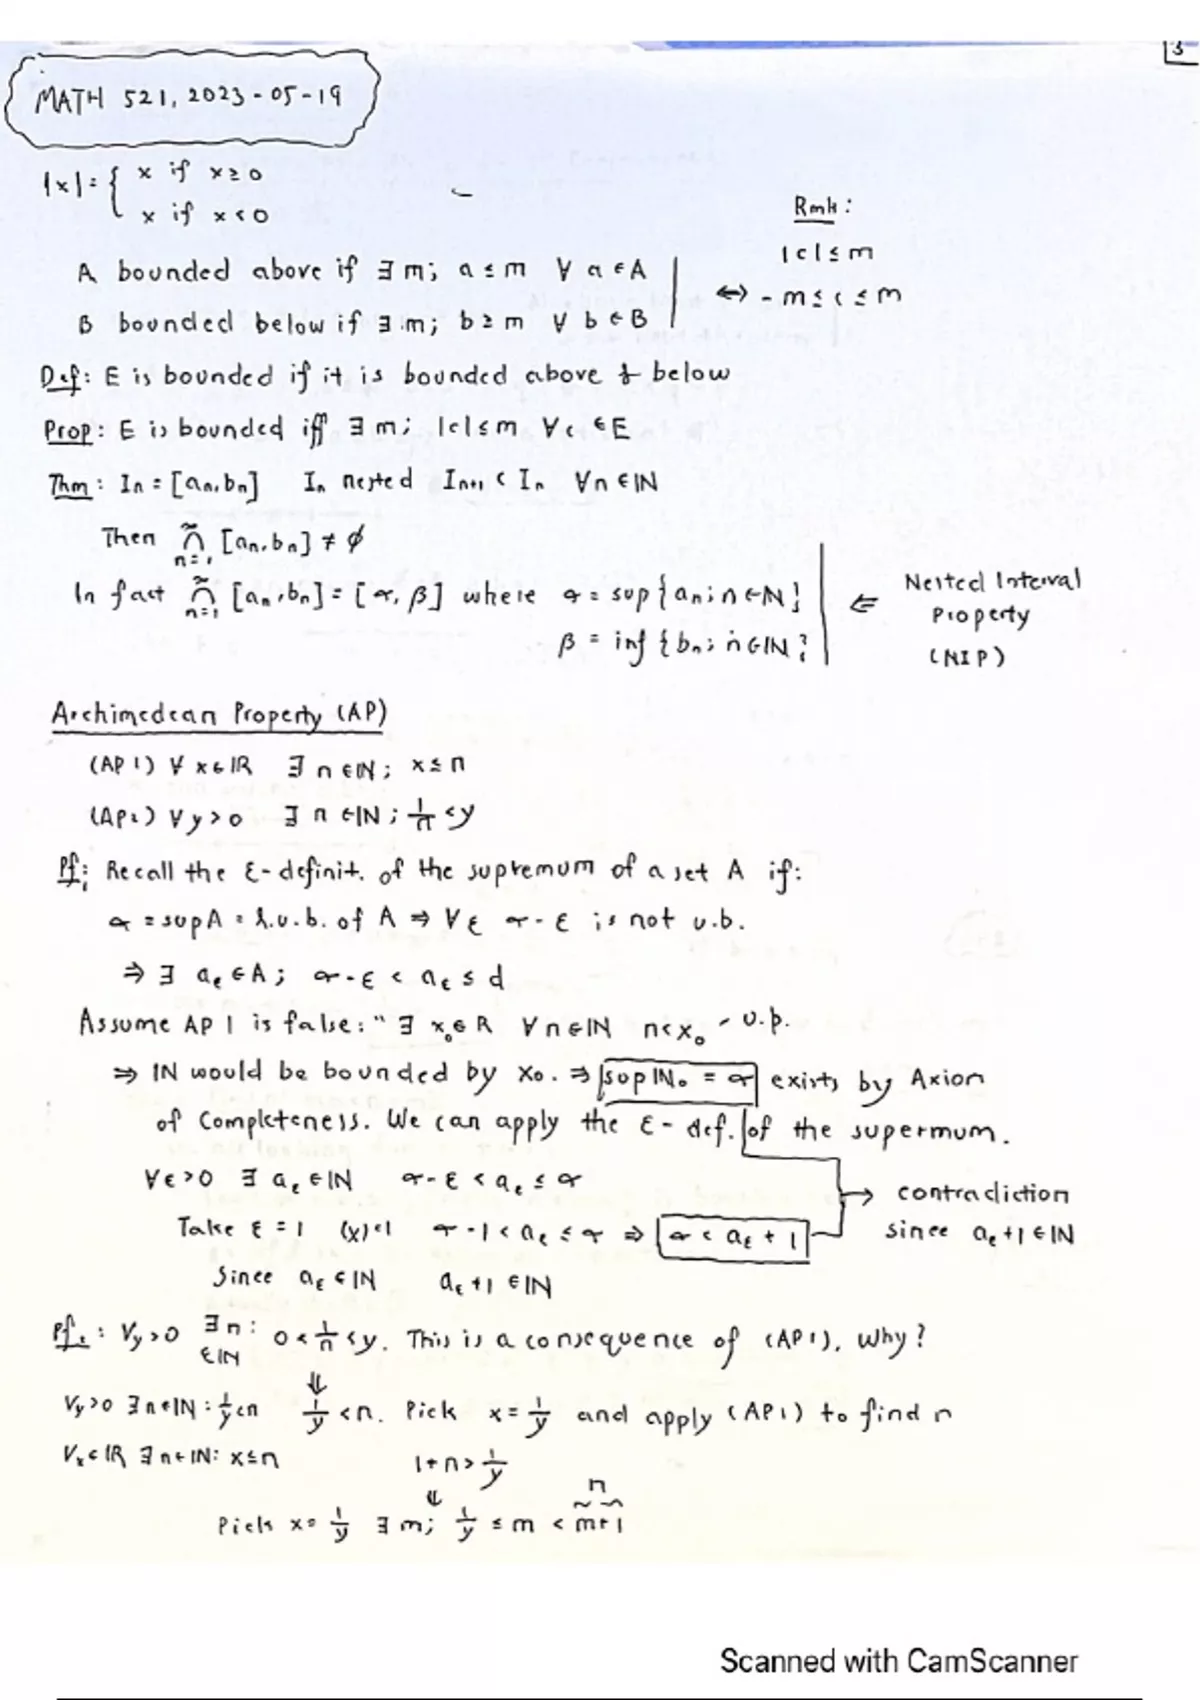 3
MATH 521, 2023-05-19
|x| = { x if x ≥ 0
x if x < 0
Rmk:
|c| ≤ m
↔ -m ≤ c ≤ m
A bounded above if ∃ m; a ≤ m ∀ a ∈ A
B bounded below if ∃ m; b ≥ m ∀ b ∈ B
Def: E is bounded if it is bounded above & below
Prop: E is bounded iff ∃ m; |c| ≤ m ∀ c ∈ E
Thm: In = [an, bn] In nested In+1 ⊂ In ∀ n ∈ IN
Then ∩ n=1 ∞ [an, bn] ≠ ∅
In fact ∩ n=1 ∞ [an, bn] = [α, β] where α = sup {an; n ∈ IN}
β = inf {bn; n ∈ IN}
⇐ Nested Interval
Property
(NIP)
Archimedean Property (AP)
(AP 1) ∀ x ∈ IR ∃ n ∈ IN; x ≤ n
(AP2) ∀ y > 0 ∃ n ∈ IN; 1/n < y
Pf1: Recall the ε-definit. of the supremum of a set A if:
α = sup A = l.u.b. of A ⇒ ∀ε α - ε is not u.b.
⇒ ∃ aε ∈ A; α - ε < aε ≤ d
Assume AP 1 is false: " ∃ x0 ∈ R ∀ n ∈ IN n < x0 - u.b.
⇒ IN would be bounded by x0. ⇒ sup IN0 = α exists by Axion
of Completeness. We can apply the ε-def. of the supermum.
∀ε > 0 ∃ aε ∈ IN α - ε < aε ≤ α
Take ε = 1 (x) < 1 α - 1 < aε ≤ α ⇒ α < aε + 1
→ contradiction
since aε + 1 ∈ IN
Since aε ∈ IN aε + 1 ∈ IN
Pf2: ∀y > 0 ∃ n ∈ IN: 0 < 1/n < y. This is a consequence of (AP1), Why?
⇓
∀y > 0 ∃ n ∈ IN: 1/y < n 1/y < n. Pick x = 1/y and apply (AP1) to find n
∀x ∈ IR ∃ n ∈ IN: x ≤ n 1 + n > 1/y
⇓ n
Pick x = 1/y ∃ m; 1/y ≤ m < m+1
Scanned with CamScanner